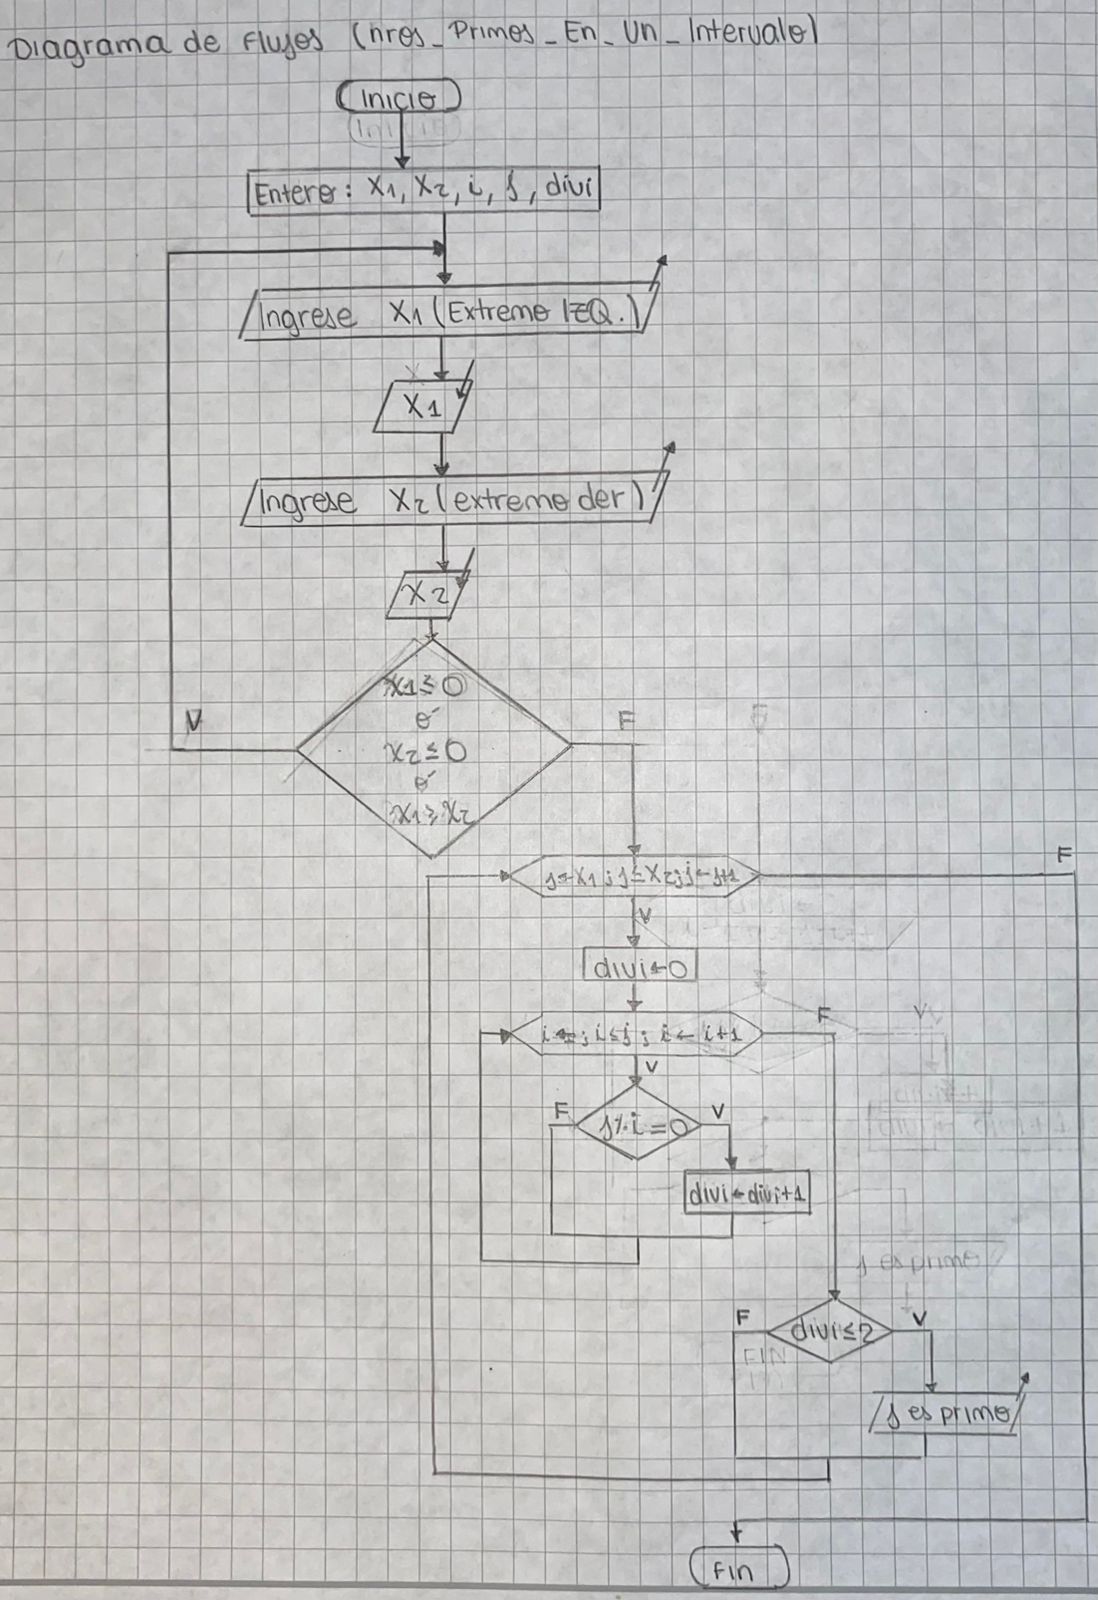 Diagrama de Flujos (nros_Primos_En_Un_Intervalo)
Inicio
Entero: X1, X2, i, j, divi
Ingrese X1 (Extremo IZQ.)
X1
Ingrese X2 (extremo der)
X2
X1 ≤ 0
ó
X2 ≤ 0
ó
X1 ≥ X2
V
F
j←X1; j≤X2; j←j+1
F
V
divi←0
i ← ; i≤j ; i ← i+1
F
V
j%i=0
F
V
divi←divi+1
divi≤2
F
V
j es primo
Fin